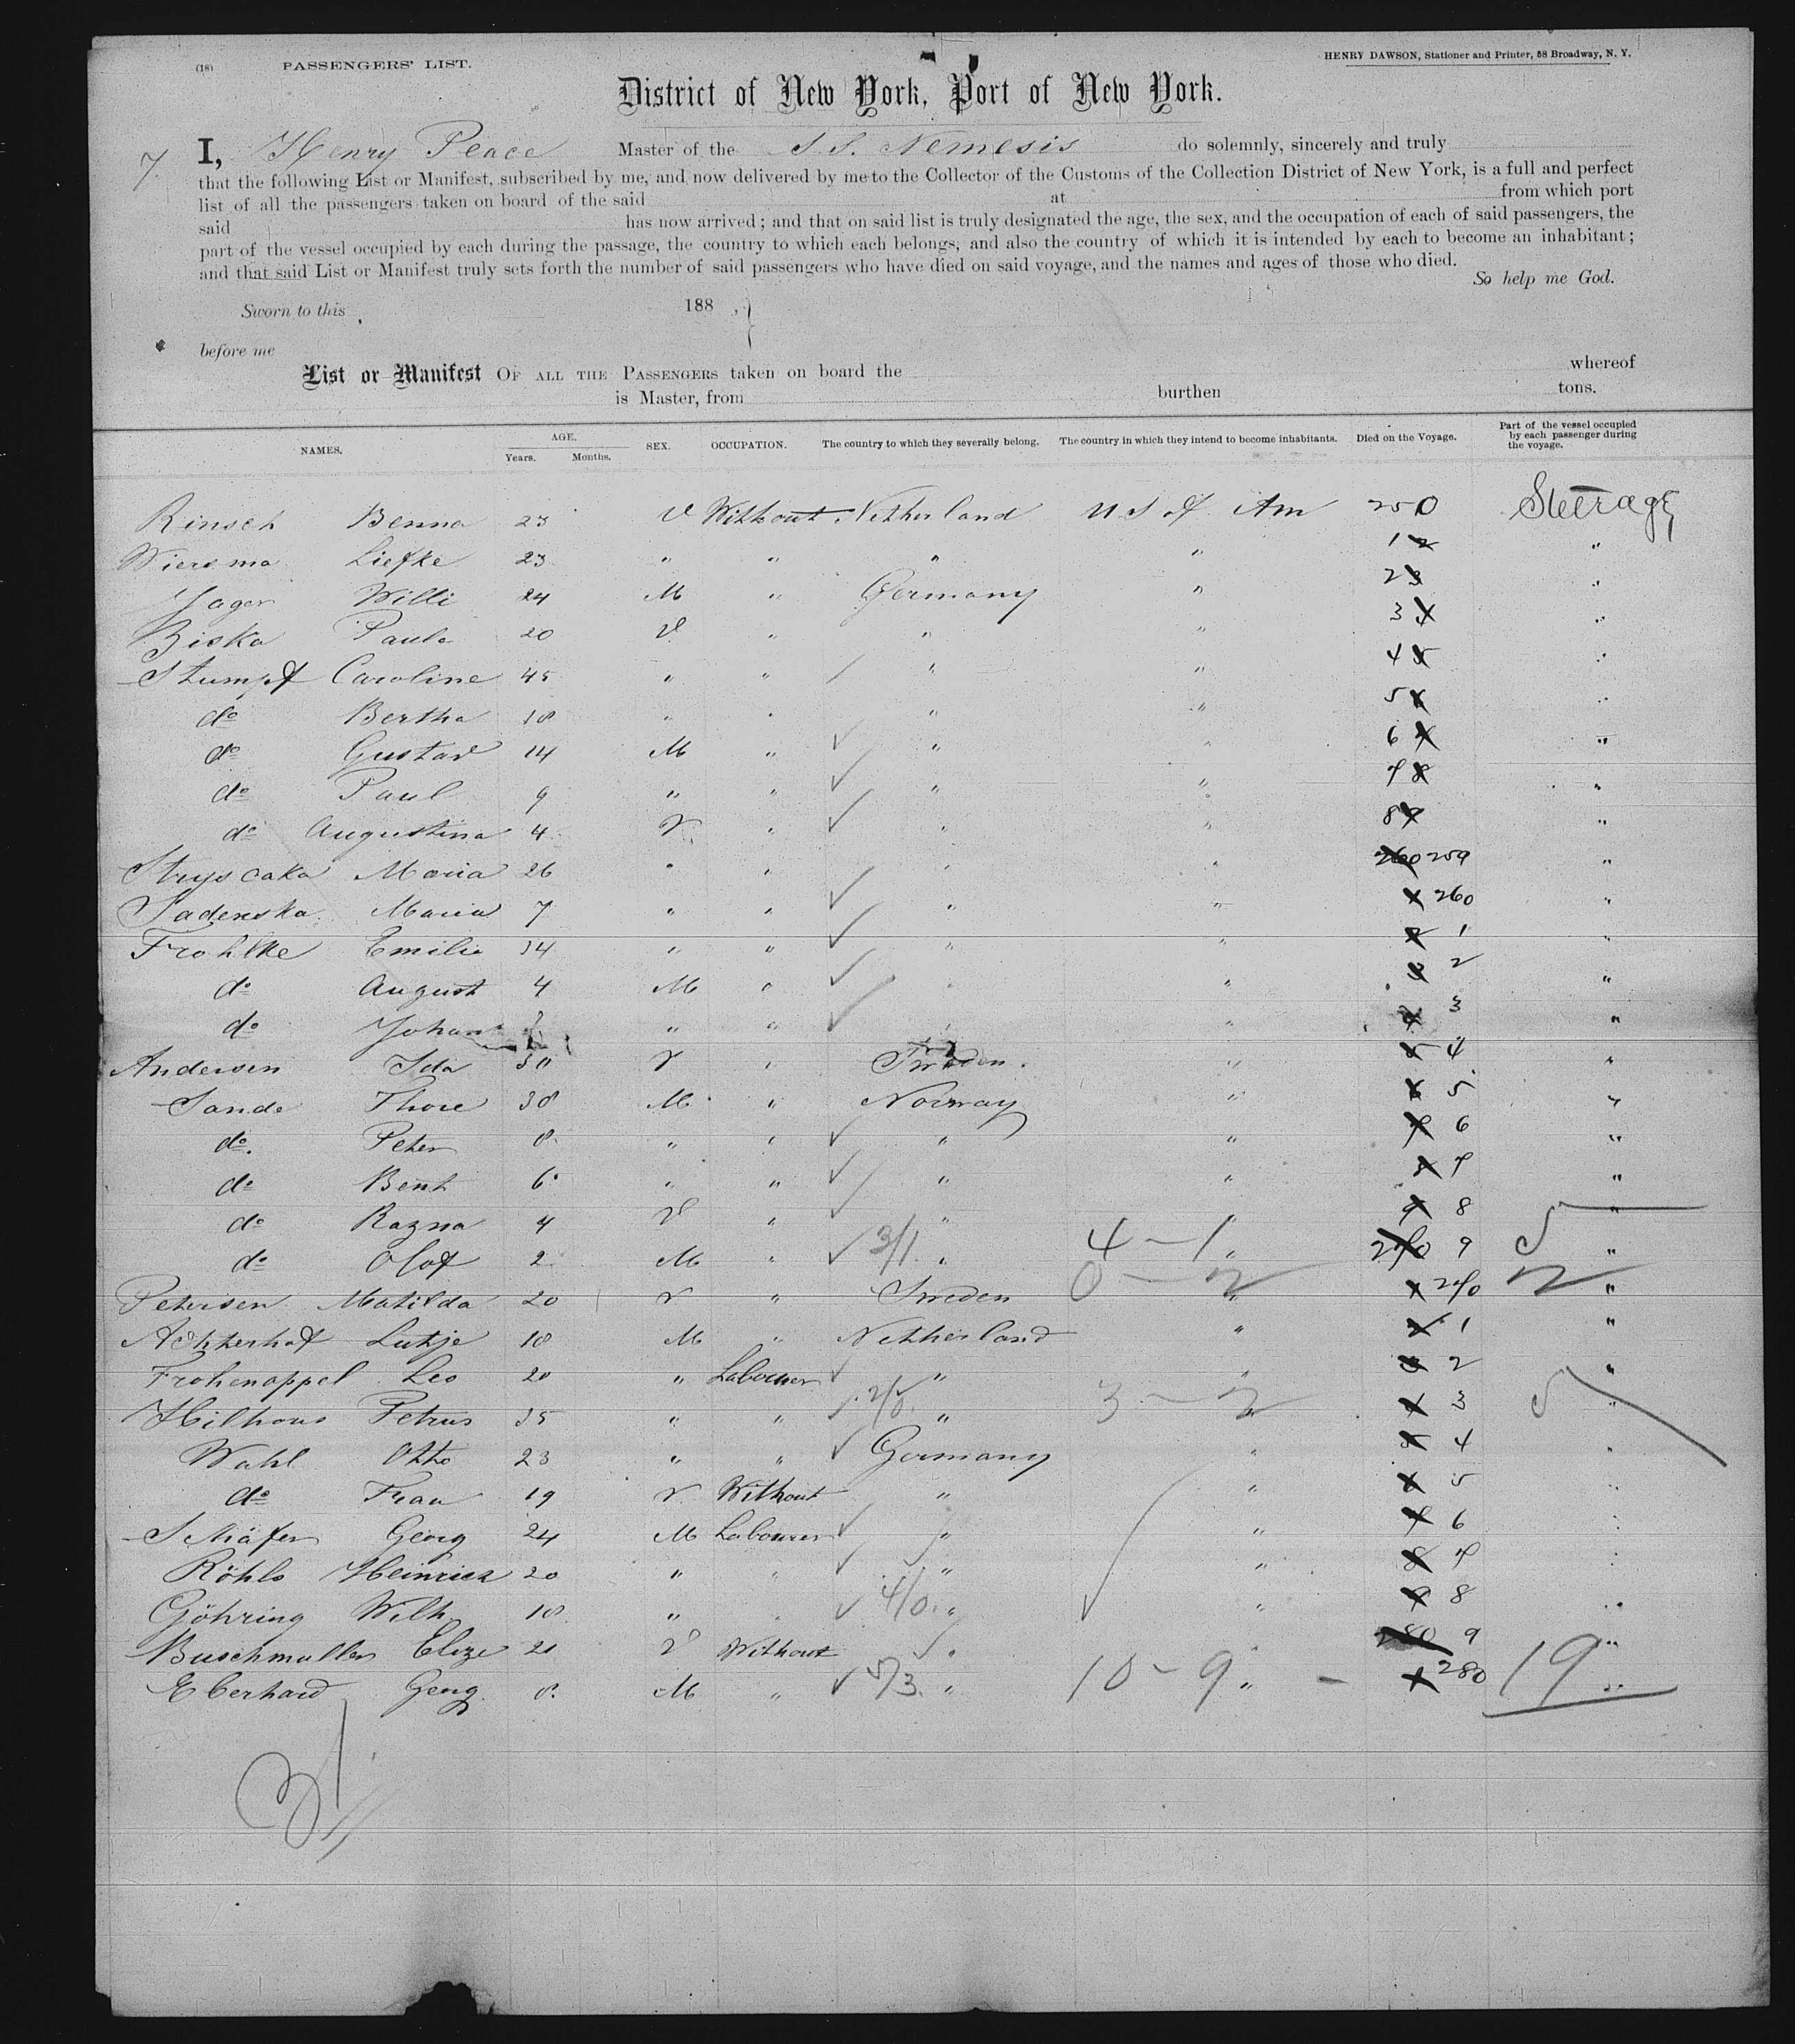 (18) PASSENGERS' LIST. HENRY DAWSON, Stationer and Printer, 58 Broadway, N. Y.
District of New York, Port of New York.
7. I, Henry Peace Master of the S. S. Nemesis do solemnly, sincerely and truly
that the following List or Manifest, subscribed by me, and now delivered by me to the Collector of the Customs of the Collection District of New York, is a full and perfect
list of all the passengers taken on board of the said at from which port
said has now arrived; and that on said list is truly designated the age, the sex, and the occupation of each of said passengers, the
part of the vessel occupied by each during the passage, the country to which each belongs, and also the country of which it is intended by each to become an inhabitant;
and that said List or Manifest truly sets forth the number of said passengers who have died on said voyage, and the names and ages of those who died.
So help me God.
Sworn to this 188 ,}
before me
List or Manifest OF ALL THE PASSENGERS taken on board the whereof
is Master, from burthen tons.
NAMES. AGE. Years. Months. SEX. OCCUPATION. The country to which they severally belong. The country in which they intend to become inhabitants. Died on the Voyage. Part of the vessel occupied by each passenger during the voyage.
Rinsch Benna 23 Without Netherland U S of Am 250 Steerage
Wiersma Liefke 23 " " " " 1 "
Jager Willi 24 M " Germany " 2 "
Ziska Paula 20 " " " 3 "
Stumpf Caroline 45 " " " " 4 "
do Bertha 18 " " " " 5 "
do Gustav 14 M " " " 6 "
do Paul 9 " " " " 7 "
do Augustina 4 " " " 8 "
Stryscaka Maria 26 " " " " 260 259 "
Sadenska Maria 7 " " " " 260 "
Frohlke Emilie 34 " " " " 1 "
do August 4 M " " " 2 "
do Johan " " " " 3 "
Andersen Ida 30 " Sweden " 4 "
Sande Thore 38 M " Norway " 5 "
do. Peter 8 " " " " 6 "
do Bent 6 " " " " 7 "
do Razna 4 " " " 8 "
do Olof 2 M " 3/1 " 4 - 1 " 270 9 5 "
Petersen Matilda 20 " Sweden 0 - 2 " 270 2 "
Achterhof Lutje 18 M " Netherland " 1 "
Frohenappel Leo 20 " Labourer " " 2 "
Hilhous Petrus 35 " " 2/0. " 3 - 2 " 3 5 "
Wahl Otto 23 " " Germany " 4 "
do Frau 19 Without " " 5 "
Schäfer Georg 24 M Labourer " " 6 "
Röhls Heinrich 20 " " " " 7 "
Göhring Wilh. 18 " " 4/0. " " 8 "
Buschmuller Elize 21 Without " 280 9 "
Eberhard Georg 8. M " 5/3. " 10 - 9 " - 280 19 "
31